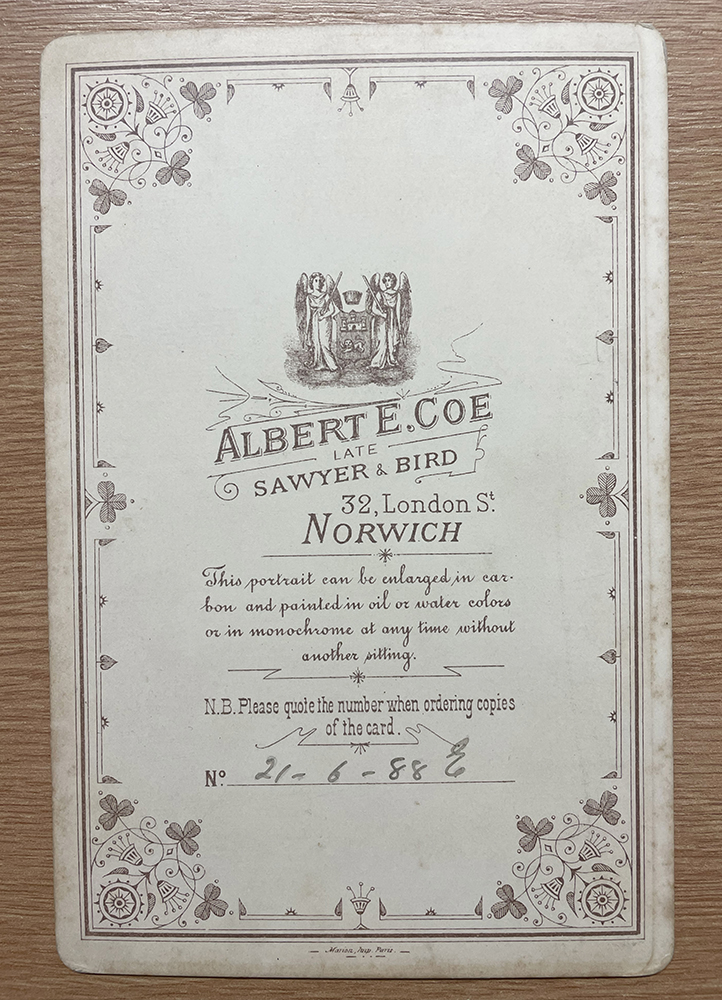 ALBERT E. COE
LATE
SAWYER & BIRD
32, London St.
NORWICH
This portrait can be enlarged in car-
bon and painted in oil or water colors
or in monochrome at any time without
another sitting.
N.B. Please quote the number when ordering copies
of the card.
No. 21-6-88 E
Marion, Imp. Paris.